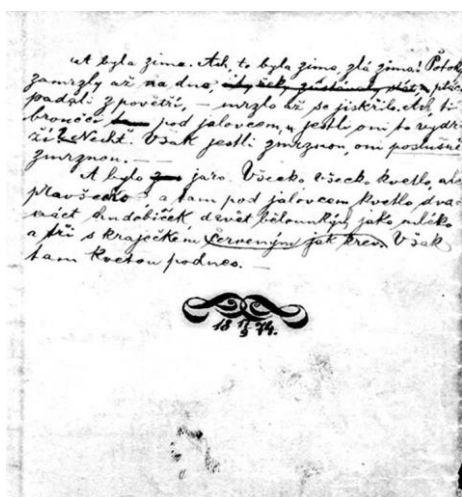 A byla zima. Ach, to byla zima, zlá zima! Potoky
zamrzly až na dno, ptáci
padali z povětří, — mrzlo až se jiskřilo. Ach, ti
brončo pod jalovcem, jestli oni to vydr-
ží? Nechť. Však jestli zmrznou, oni poslušně
zmrznou. —
A bylo jaro. Všecko všecko kvetlo, ale
pravšecko, a tam pod jalovcem kvetlo dva-
náct chudobiček, devět bělounkých jako mléko
a tři s krajíčkem červeným jak krev. Však
tam kvetou podnes. —
18 74.